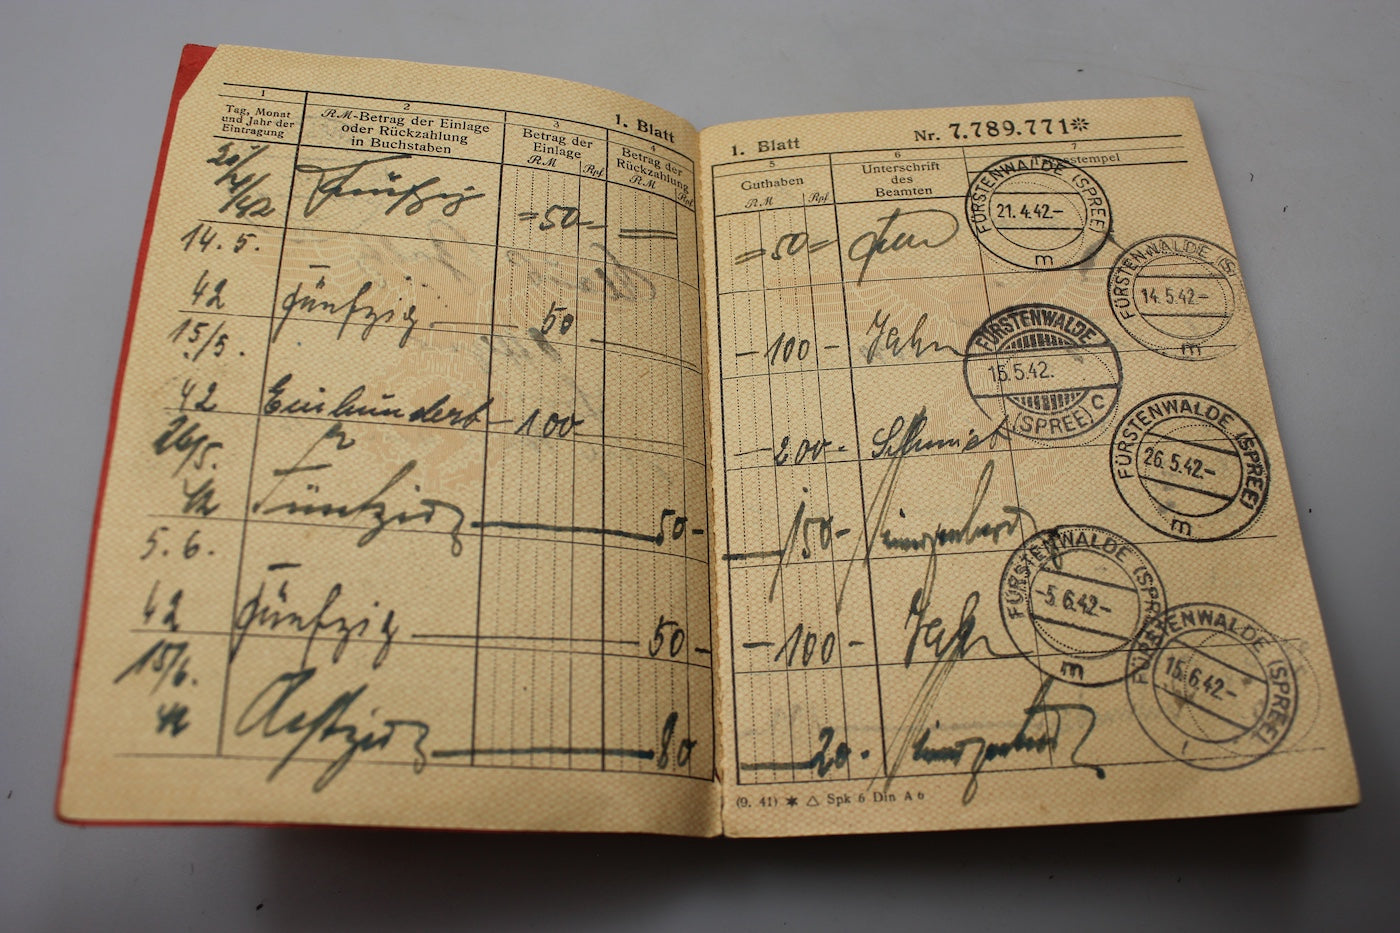 1. Blatt
1 2 3 4
Tag, Monat und Jahr der Eintragung
RM-Betrag der Einlage oder Rückzahlung in Buchstaben
Betrag der Einlage
RM Rpf
Betrag der Rückzahlung
RM Rpf
Fünfzig =50-
14.5.
42 Fünfzig 50
15./5.
42 Einhundert 100
26/5.
42 Fünfzig 50-
5.6.
42 Fünfzig 50-
15/6.
42 Achtzig 80
1. Blatt Nr. 7.789.771*
5 6 7
Guthaben
RM Rpf
Unterschrift des Beamten
=50=
-100- Jahn
-200- Schmidt
150-
-100- Jahn
20.-
FÜRSTENWALDE (SPREE)
21.4.42.-
m
FÜRSTENWALDE (S
14.5.42-
m
FÜRSTENWALDE
15.5.42.
(SPREE) C
FÜRSTENWALDE (SPREE)
26.5.42-
m
FÜRSTENWALDE (SPRE
-5.6.42-
m
FÜRSTENWALDE (SPREE)
15.6.42-
(9. 41) * △ Spk 6 Din A 6